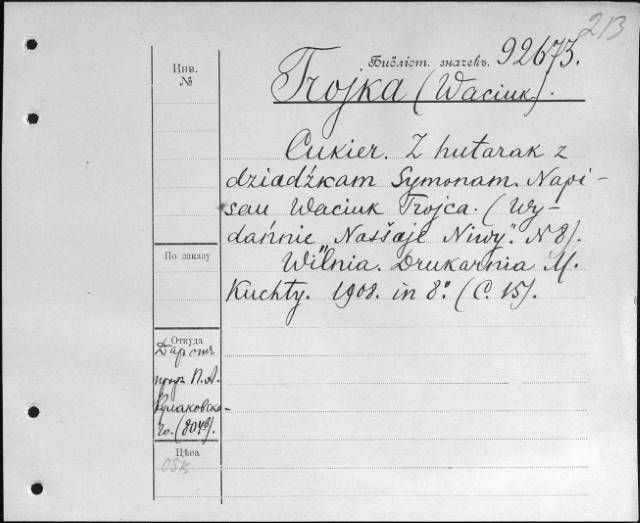 213
Библіот. значекъ. 92673.
Инв.
№
Trojka (Waciuk).
Cukier. Z hutarak z
dziadźkam Symonam. Napi-
sau Waciuk Trojca. (Wy-
dańnie "Naššaje Niwy". N 8).
Wilnia. Drukarnia M.
Kuchty. 1908. in 8°. (C. 15).
По заказу
Откуда
Даръ отъ
проф. П. А.
Кулаковска-
го.
Цѣна